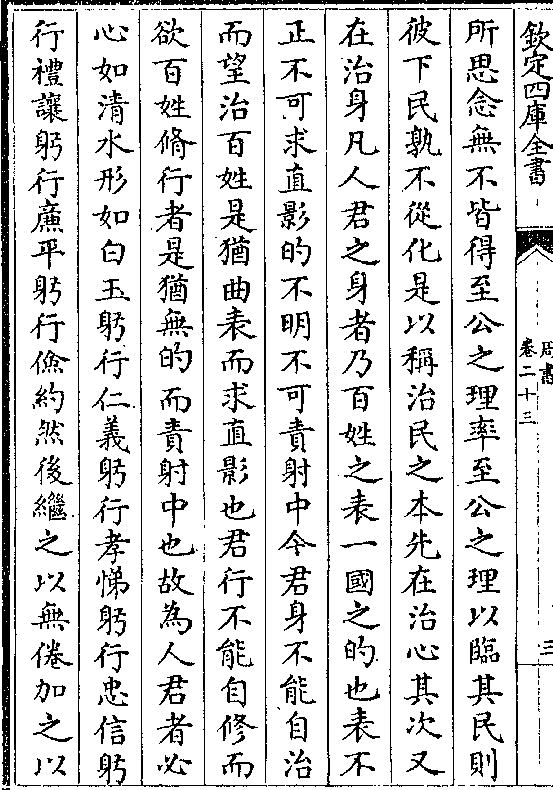 欽定四庫全書
周書
卷二十三
三
所思念無不皆得至公之理率至公之理以臨其民則
彼下民孰不從化是以稱治民之本先在治心其次又
在治身凡人君之身者乃百姓之表一國之的也表不
正不可求直影的不明不可責射中今君身不能自治
而望治百姓是猶曲表而求直影也君行不能自修而
欲百姓脩行者是猶無的而責射中也故為人君者必
心如清水形如白玉躬行仁義躬行孝悌躬行忠信躬
行禮讓躬行廉平躬行儉約然後繼之以無倦加之以